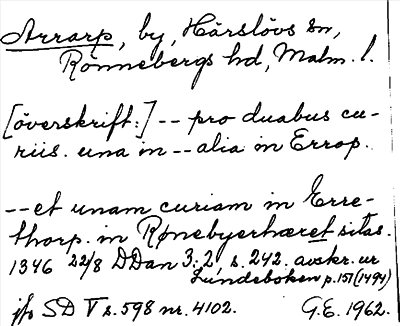 Arrarp, by, Härslövs sn,
Rönnebergs hd, Malm. l.
[överskrift:] -- pro duabus cu-
riis. una in -- alia in Errop.
-- et unam curiam in Erre-
thorp. in Rønebyerhæret sitas.
1346 22/8 DDan 3:2 s. 242. avskr. ur
Lundeboken p.151 (1494)
jfr SD V s. 598 nr. 4102. G.E. 1962.